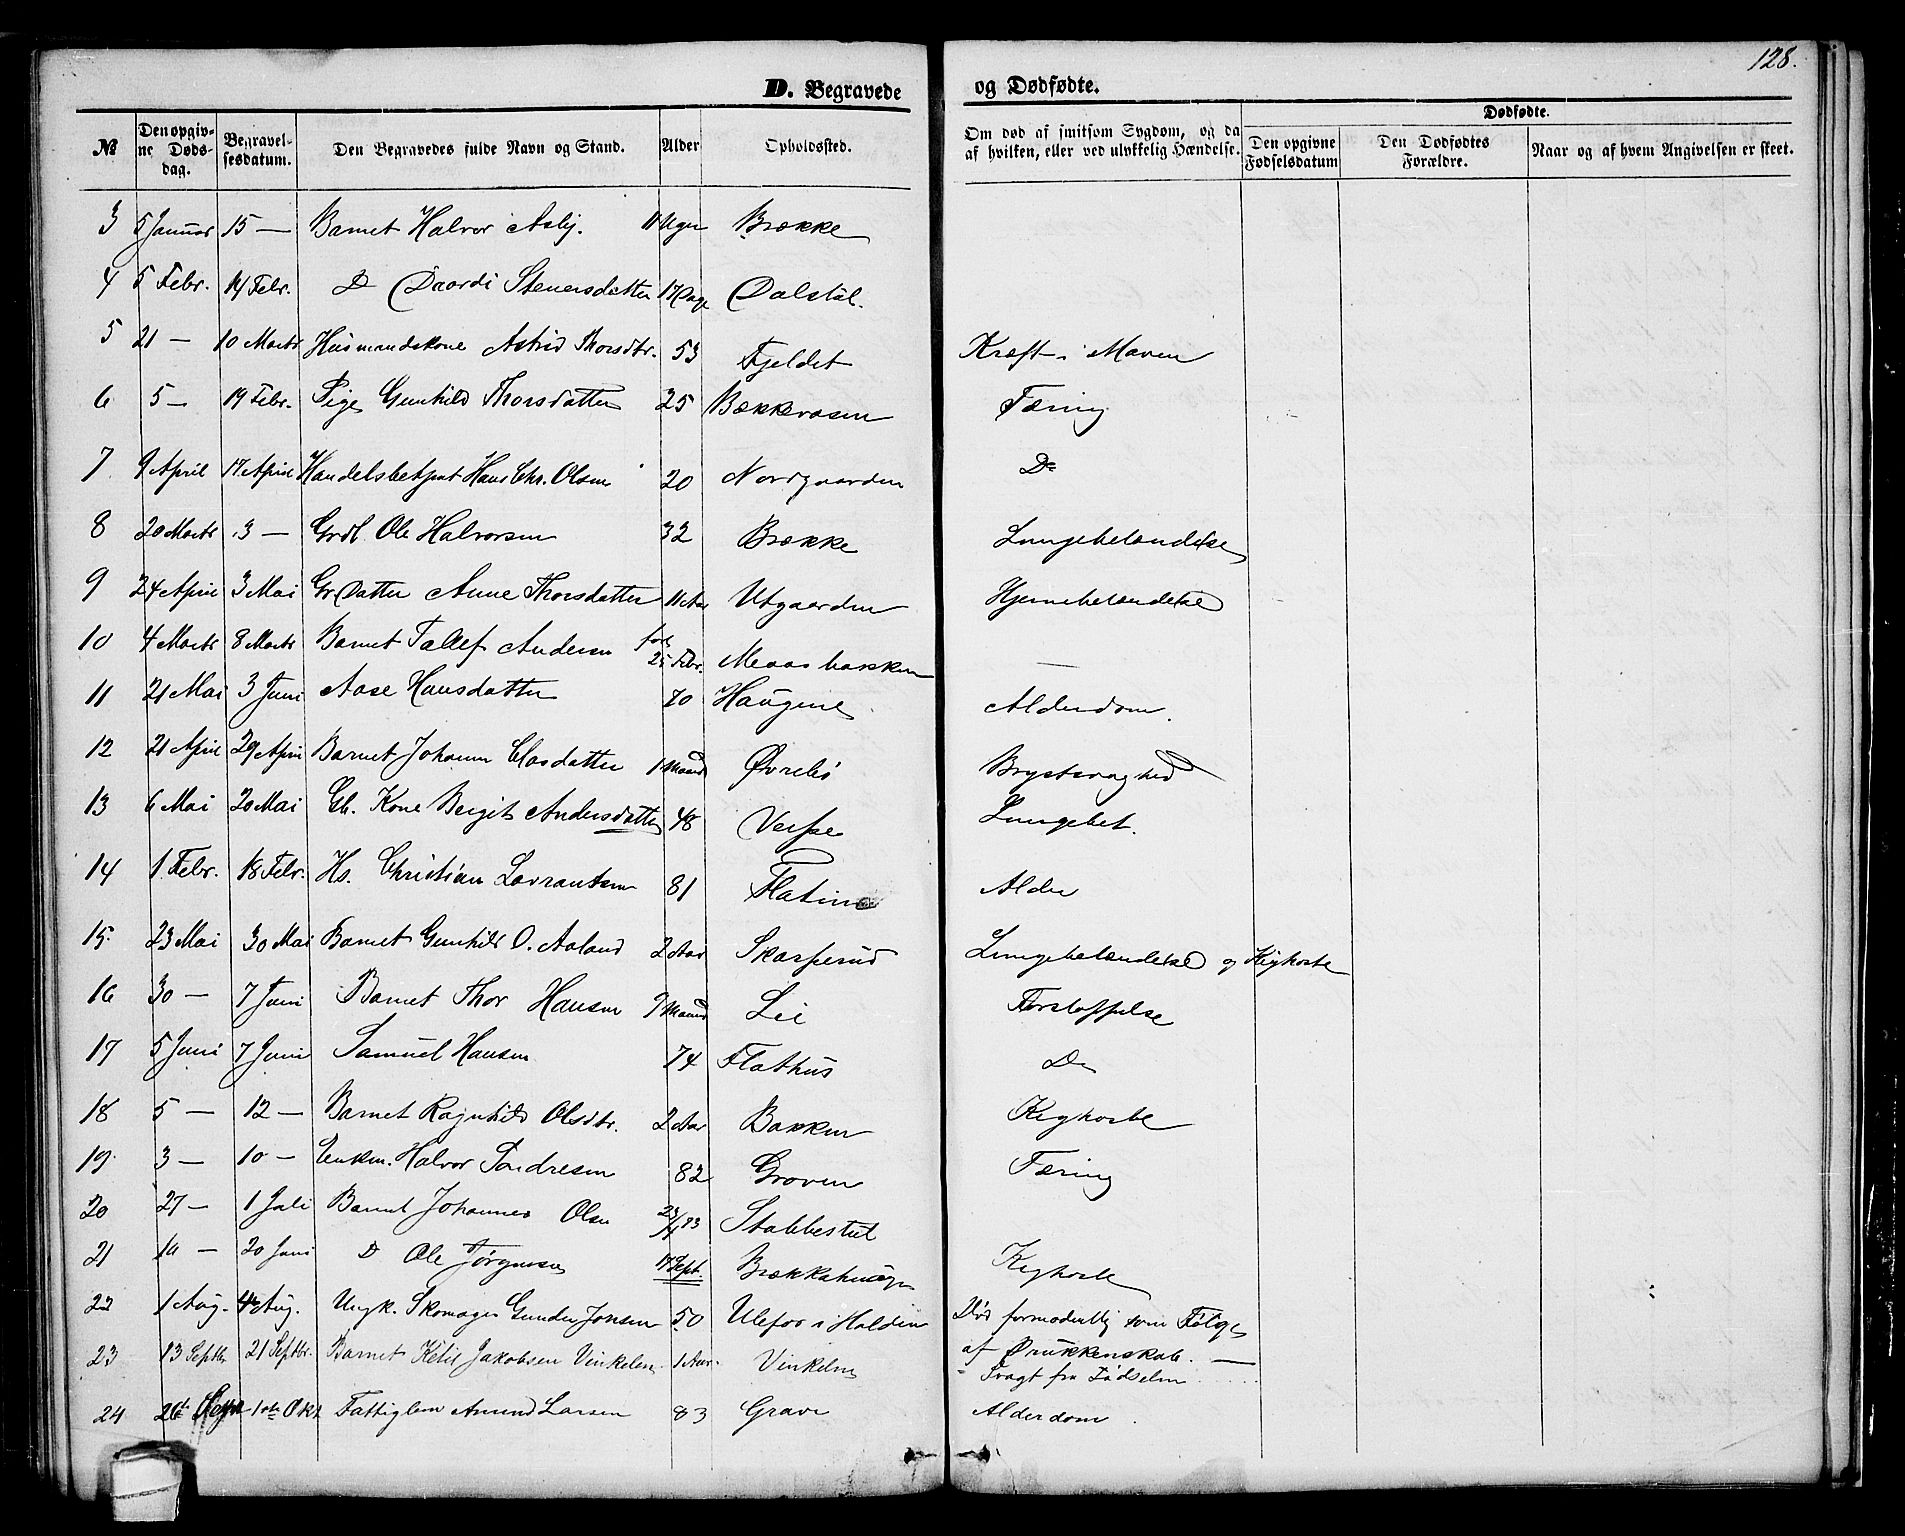 128.
D. Begravede og Dødfødte.
№ Den opgivne Dødsdag. Begravelsesdatum. Den Begravedes fulde Navn og Stand. Alder Opholdssted. Om død af smitsom Sygdom, og da af hvilken, eller ved ulykkelig Hændelse. Dødfødte. Den opgivne Fødselsdatum Den Dødfødtes Forældre. Naar og af hvem Angivelsen er skeet.
3 5 Januar 15 — Barnet Halvor Aslej. 11 Uger Brække
4 5 Febr. 14 Febr. D Daardi Stenersdatter 17 Dage Dalstöl.
5 21 — 10 Marts Husmandskone Astrid Thorsdtr. 53 Fjeldet Kræft i Maven
6 5 — 19 Febr. Pige Gunhild Thorsdatter 25 Bækkevasen Tæring
7 9 April 17 April Handelsbetjent Hans Chr. Olsen 20 Nordgaarden Do
8 20 Marts 3 — Grdl Ole Halvorsen 32 Brække Lungebetændelse
9 24 April 3 Mai Gr Datter Anne Thorsdatter 11 Aar Utgaarden Hjernebetændelse
10 4 Marts 8 Marts Barnet Tallef Andersen 25 Febr. —
11 21 Mai 3 Juni Aase Hansdatter 70 Haugene Alderdom.
12 21 April 29 April Barnet Johanne Olasdatter 1 Maaned Øvrebö Brystsvaghed
13 6 Mai 20 Mai Kone Bergit Andersdatter 48 Versse Lungebet.
14 1 Febr. 18 Febr. Hs. Christian Lavrantsen 81 Flatin Alder
15. 23 Mai 30 Mai Barnet Gunhild O. Aaland 2 Aar Skarperud Lungebetændelse og Kighoste
16 30 — 7 Juni Barnet Thor Hansen 9 Maaned Lei Forstoppelse
17 5 Juni 7 Juni Samuel Hansen 74 Flathus Do
18 5 — 12 — Barnet Ragnhild Olsdtr. 2 Aar Bakken Kighoste
19. 3 — 10 — Enkm. Halvor Sondresen 82 Groven Tæring
20 27 — 1 Juli Barnet Johannes Olsen Stabbestul
21 14 — 20 Juni D Ole Jørgensen 17 Sept. Brækkahaugen Kighoste
22 1 Aug. 4 Aug. Ungk. Skomager Gunder Jonsen 50 Ulefos i Holden Död formodentlig som Fölge
af Drukkenskab. —
23 13 Septbr 21 Septbr. Barnet Ketil Jakobsen Vinkelen 1 Aar. Vinkelen Svagt fra Fødselen
24 1ste Okt Fattiglem Amund Larsen 83 Grave Alderdom.